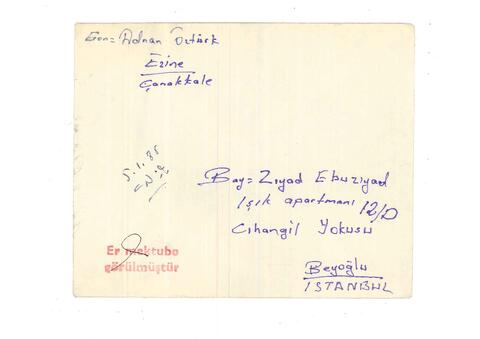 Gön= Adnan Öztürk
Ezine
Çanakkale
5.1.85
Bay= Zıyad Ebuzıyad
Işık apartmanı 12/D
Cıhangil Yokusu
Beyoğlu
İSTANBUL
Er mektubu
görülmüştür